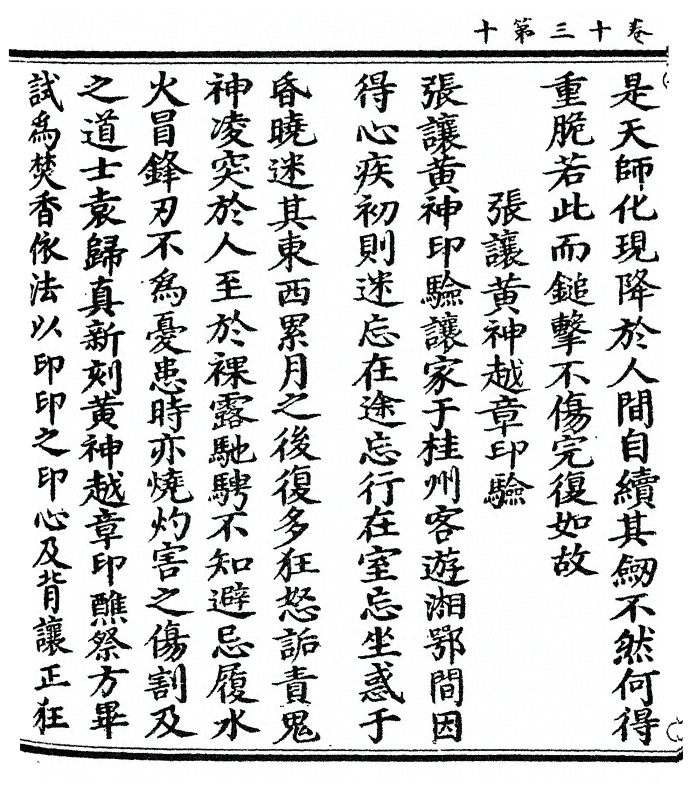 卷十三第十
是天師化現降於人間自續其劒不然何得
重脆若此而鎚擊不傷完復如故
張讓黄神越章印驗
張讓黄神印驗讓家于桂州客遊湘鄂間因
得心疾初則迷忘在途忘行在室忘坐惑于
昏曉迷其東西累月之後復多狂怒詬責鬼
神凌突於人至於裸露馳騁不知避忌履水
火冒鋒刃不為憂患時亦燒灼害之傷割及
之道士袁歸真新刻黄神越章印醮祭方畢
試為焚香依法以印印之印心及背讓正狂